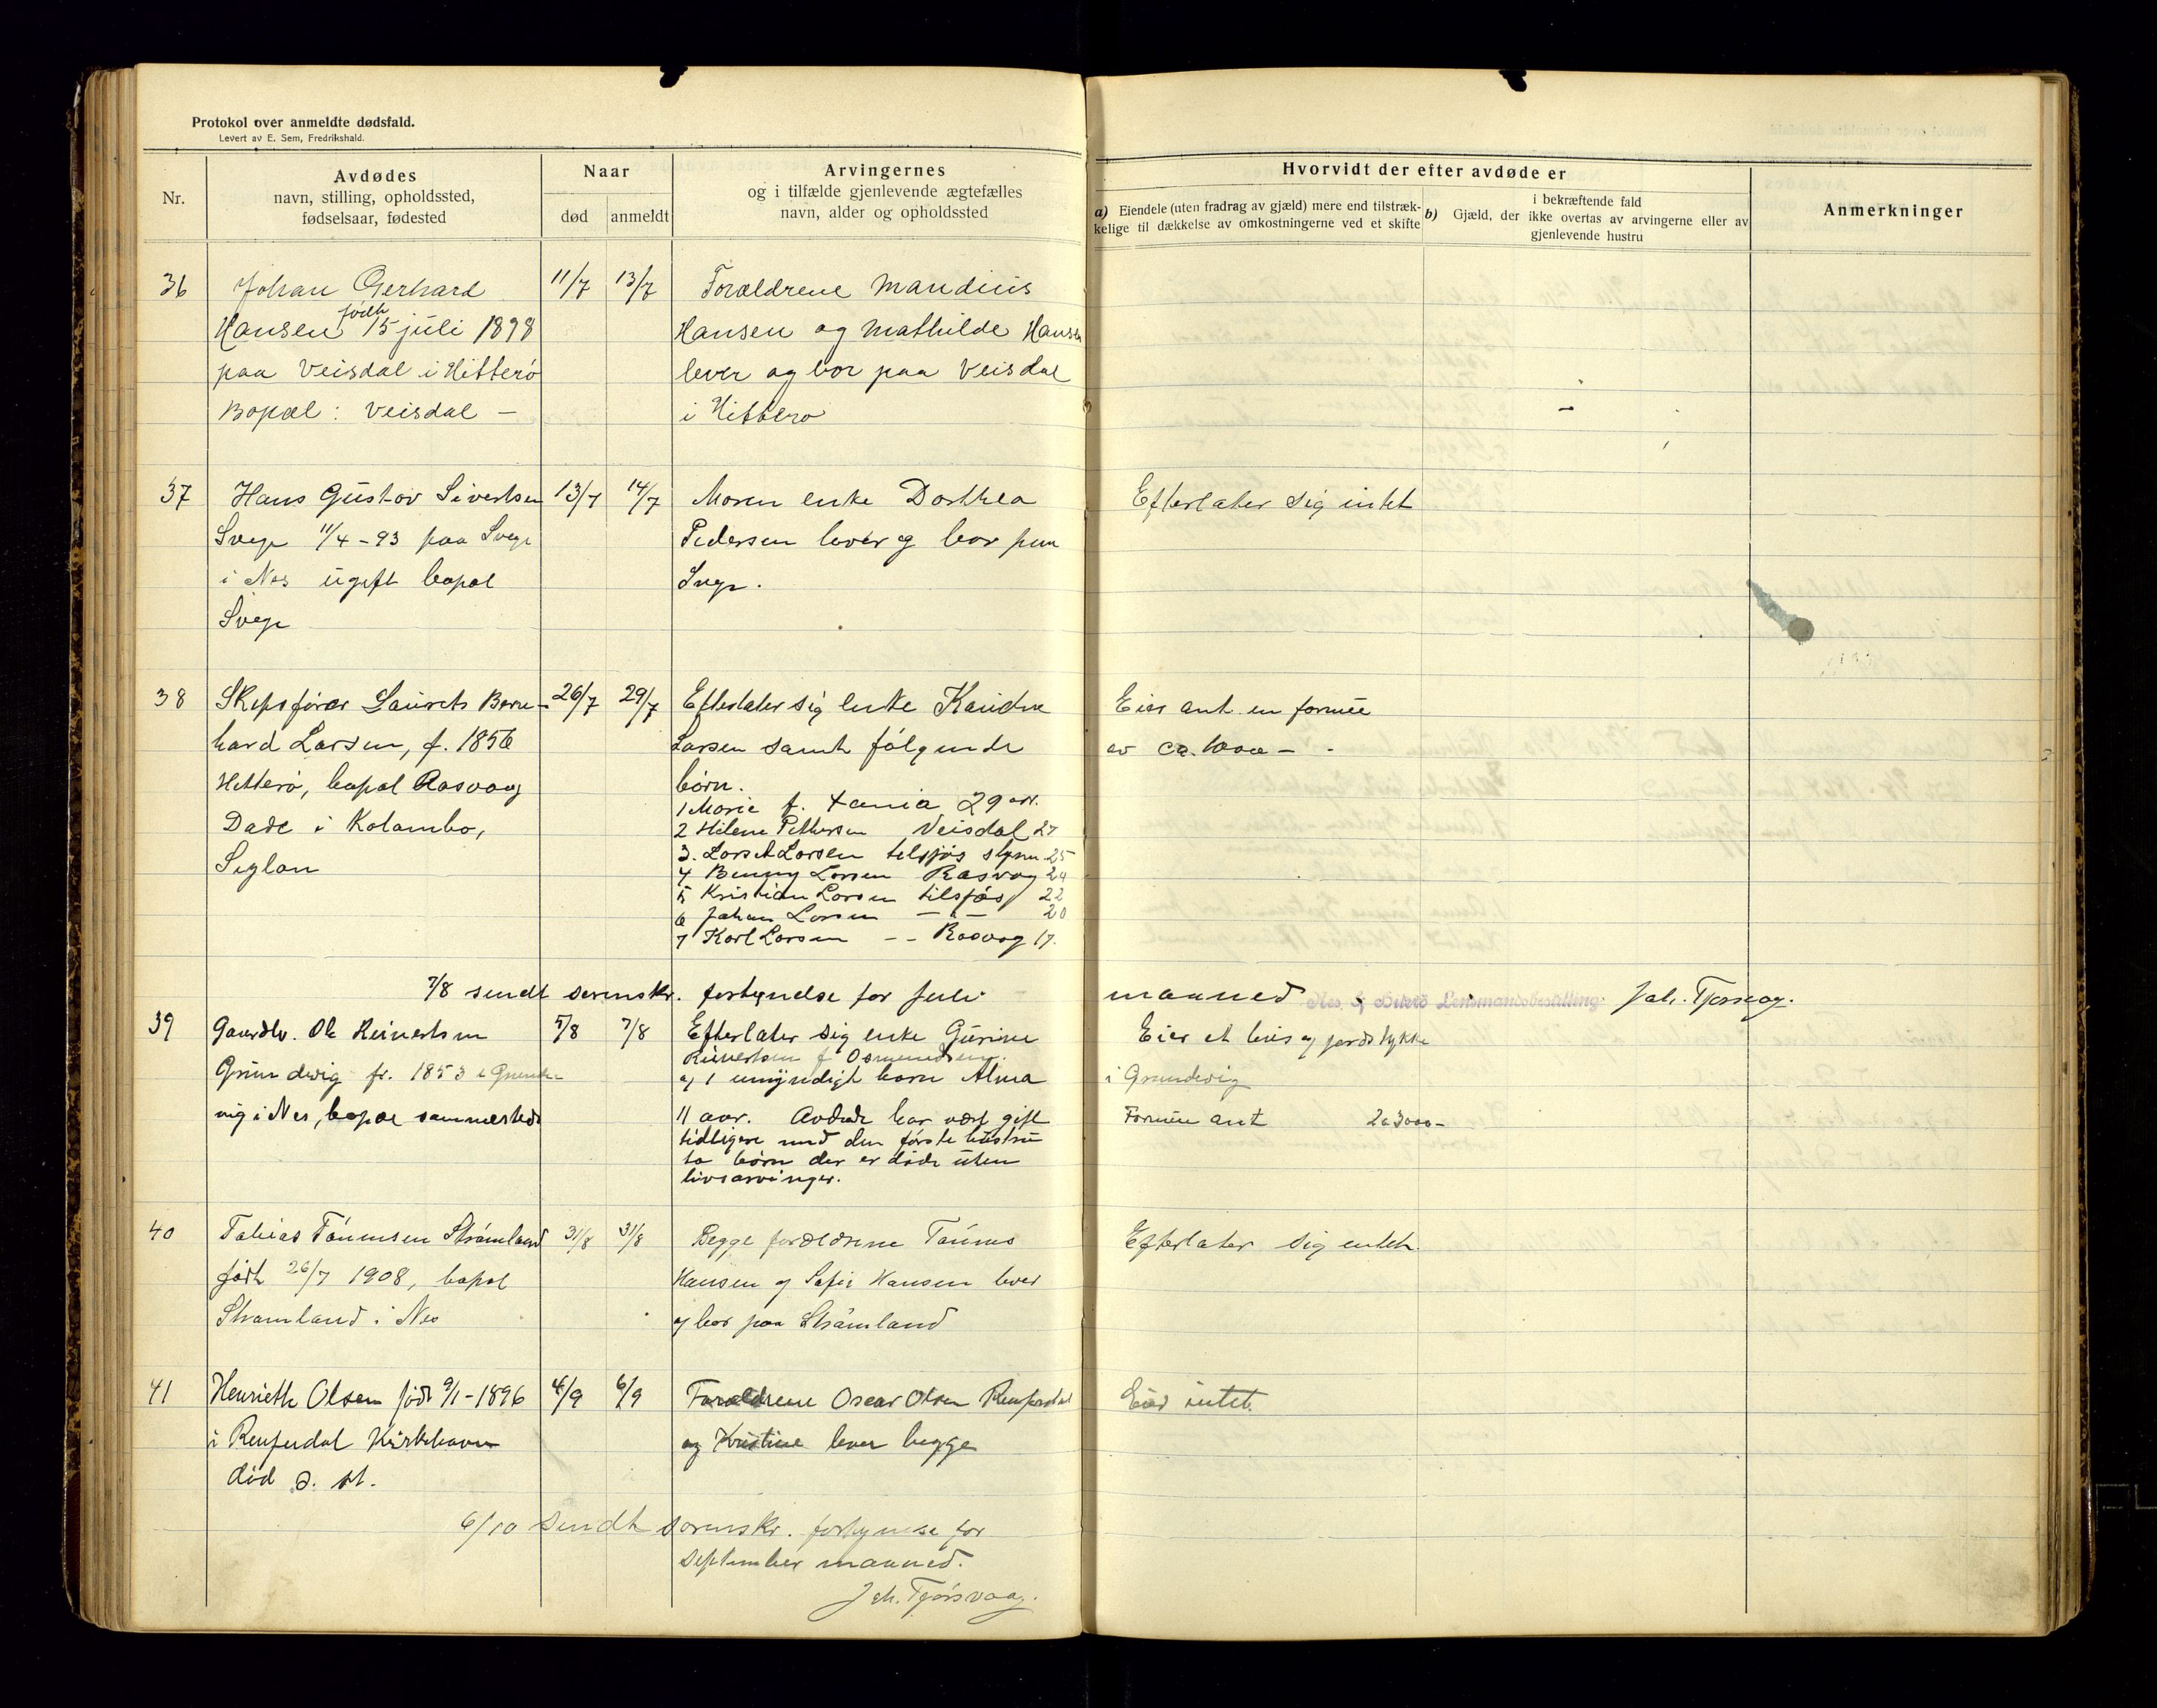 Protokol over anmeldte dødsfald.
Levert av E. Sem, Fredrikshald.
Nr.
Avdødes
navn, stilling, opholdssted,
fødselsaar, fødested
Naar
død
anmeldt
Arvingernes
og i tilfælde gjenlevende ægtefælles
navn, alder og opholdssted
Hvorvidt der efter avdøde er
a) Eiendele (uten fradrag av gjæld) mere end tilstræk-
kelige til dækkelse av omkostningerne ved et skifte
i bekræftende fald
b) Gjæld, der ikke overtas av arvingerne eller av
gjenlevende hustru
Anmerkninger
36
Johan Gerhard
født
Hansen 15 juli 1898
paa Veisdal i Hitterö
Bopæl: Veisdal –
11/7
13/7
Forældrene Mandius
Hansen og Mathilde Hansen
lever og bor paa Veisdal
i Hitterø
37
Hans Gustav Sivertsen
Svege 11/4-93 paa Svege
i Nes ugift bopæl
Svege
13/7
14/7
Moren enke Dorthea
Pedersen lever og bor paa
Svege.
Efterlater sig intet
38
Skipsfører Laurets Bern-
hard Larsen, f. 1856
Hitterø, bopæl Rasvaag
Døde i Kolombo,
Seylon
26/7
29/7
Efterlater sig enke
Larsen samt følgende
børn.
1 Marie f. 29 aar.
2 Helene Pettersen Veisdal 27
3. Larsen tilsjøs 25
4 Benny Larsen Rasvag 24
5 Kristian Larsen tilsjøs 22
6 Johan Larsen – " – 20
7 Karl Larsen – – Rasvag 17.
Eier ant. en formue
av ca.
7/8 sendt sorenskr. fortegnelse for juli
maaned Nes & Hitterø Lensmandsbestilling. Joh. Tjørsvaag.
39
Gaardbr. Ole Reinertsen
Grundevig f. 1853 i Grunde-
vig i Nes, bopæl sammesteds
5/8
7/8
Efterlater sig enke Gurine
Reinertsen f. Osmundsen
og 1 umyndigt barn Alma
11 aar. Avdøde har vært gift
tidligere med den første hustru
to børn der er døde uten
livsarvinger.
Eier et hus og jordstykke
i Grundevig
Formue ant 2a3000–
40
Tobias Tønnesen Strømland
født 26/7 1908, bopæl
Strømland i Nes
31/8
31/8
Begge forældrene Tønnes
Hansen og Sofie Hansen lever
og bor paa Strømland
Efterlater sig intet.
41
Henriette Olsen født 9/1-1896
i Renferdal Kirkehavn
død s. st.
4/9
6/9
Forældrene Oscar Olsen
og Kristine lever begge
Eier intet.
6/10 sendt sorenskr. fortegnelse for
september maaned.
Joh. Tjørsvaag.